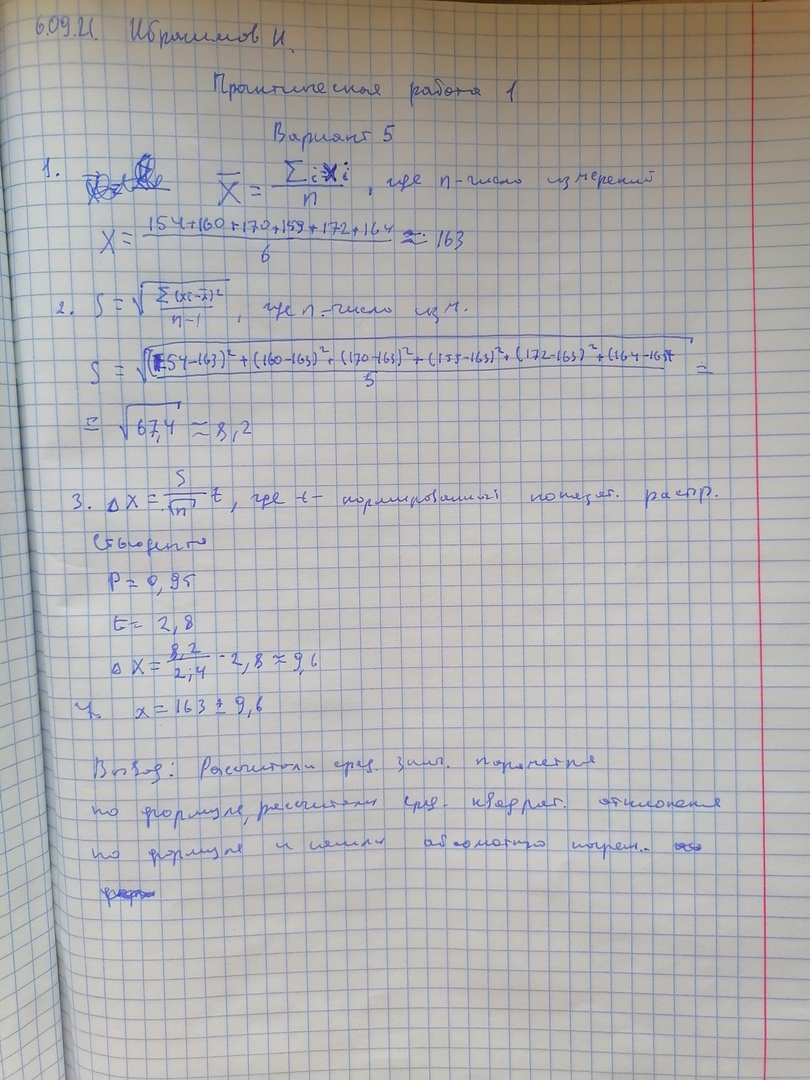 6.09.21. Ибрагимов И.
Практическая работа 1
Вариант 5
1. X̄ = Σi Xi / n , где n-число измерений
X = 154+160+170+159+172+164 / 6 ≈ 163
2. S = √(Σ(xi-x̄)² / n-1) , где n-число изм.
S = √((154-163)² + (160-163)² + (170-163)² + (155-163)² + (172-163)² + (164-163)² / 5) =
= √67,4 ≈ 8,2
3. ΔX = S/√n t, где t- нормированный показат. распр.
Стьюдента
P = 0,95
t = 2,8
ΔX = 8,2/2,4 · 2,8 ≈ 9,6
4. x = 163 ± 9,6
Вывод: Рассчитали сред. знач. параметра
по формуле, рассчитали сред. квадрат. отклонения
по формуле и нашли абсолютную погреш.